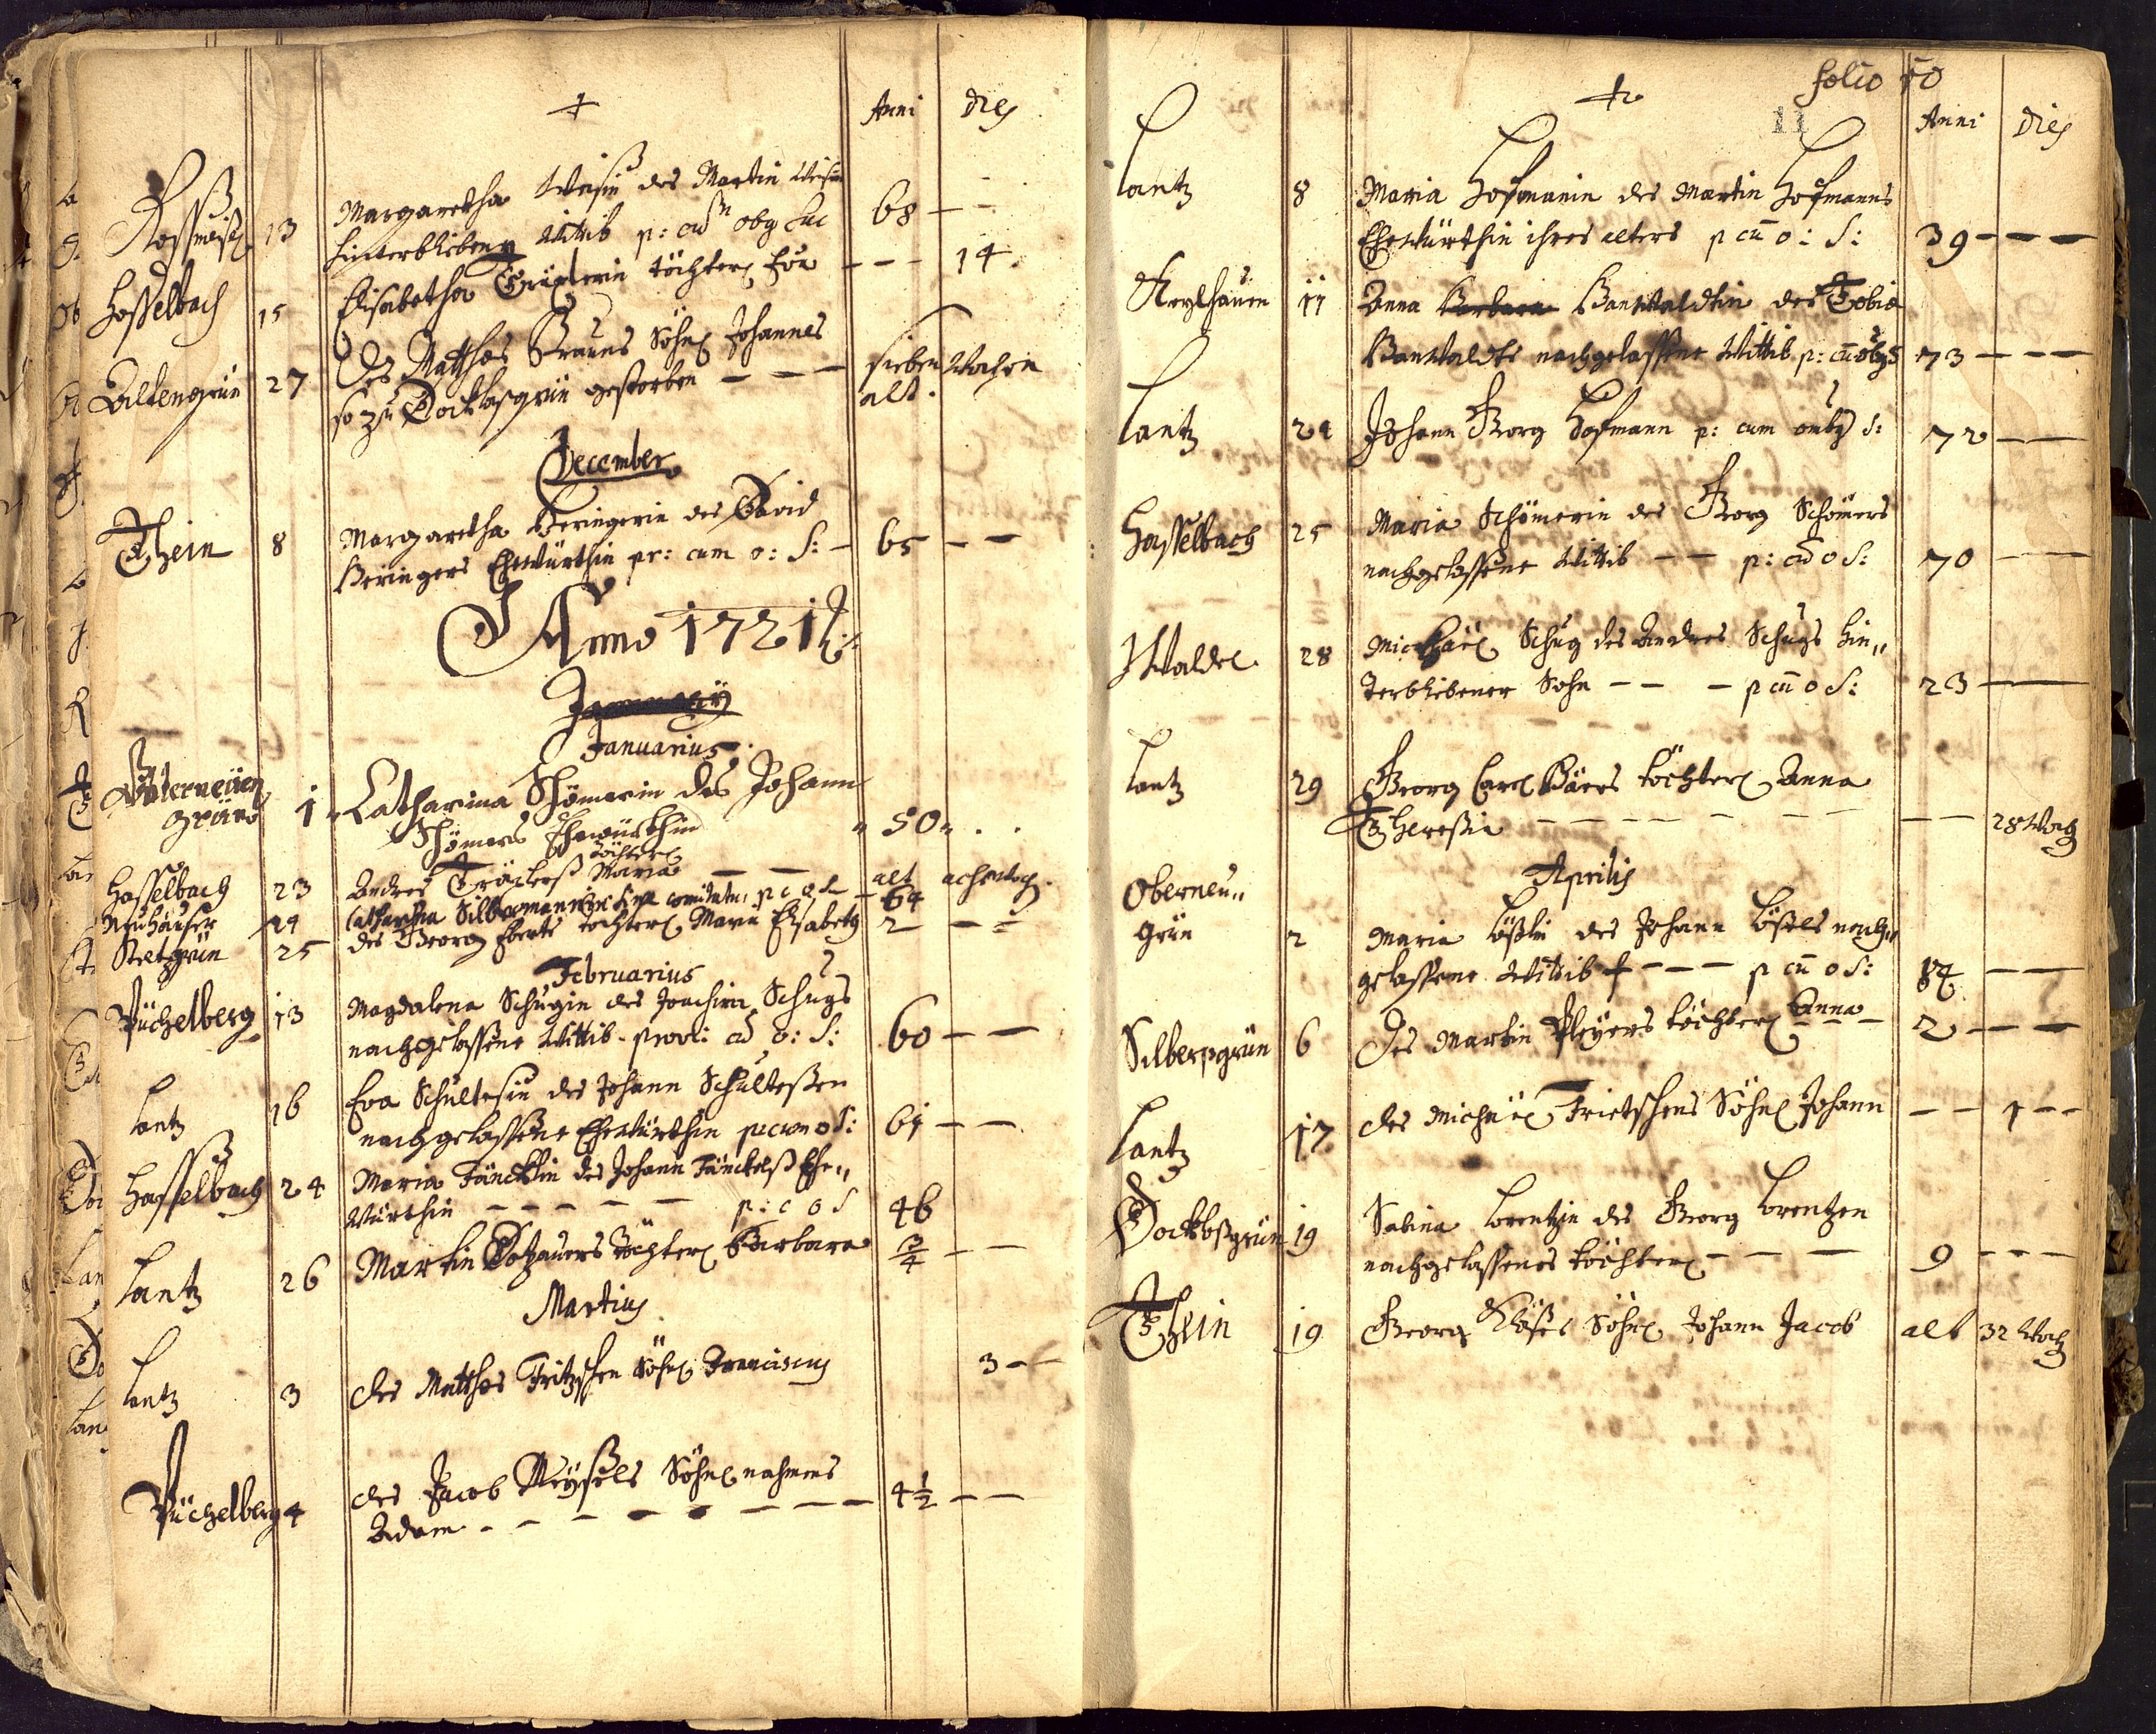 † Anni dies
Rossmeisl 13 Margaretha Weisin des Martin Weisen
hinterblibene Wittib p: 68 – –
Hasselbach 15 Elisabetha töchterl – – – 14.
Altengrün 27 des Matthes Brauns Söhnl Johannes
so zu Docklasgrün gestorben – – – sieben Wochen
alt.
December
Thein 8 Margaretha Beringerin des David
Beringers Ehewürthin pr: cum o: S: – 65 – –
Anno 1721
Januarius.
Unterneuen
grün 1 Catharina Schömerin des Johann
Schömers Ehewürthin 50
töchterl
Hasselbach 23 Andres Maria – – alt acht Woch.
Neuhäuser 24 Catharina Silbermannin sine comitatu, p c o S – 64
Reetgrün 25 des Georg Eberts töchterl Maria Elisabeth 2 – –
Februarius
Püchelberg 13 Magdalena Schugin des Joachim Schugs
nachgelassene Wittib – provi: o: S: 60 – –
Lantz 16 Eva Schultesin des Johann Schultessen
nachgelassene Ehewürthin p cum o S: 61 – –
Hasselbach 24 Maria Fäncklin des Johann Fänckelß Ehe„
würthin – – – – – p: c o S 46
Lantz 26 Martin töchterl Barbara 3/4 – –
Martius
Lantz 3 des Matthes Fritzschen Söhnl Franciscus 3 – –
Püchelberg 4 des Jacob Meysels Söhnl nahmens
Adam – – – – – – – – 4 1/2 – –
folio 10
11
† Anni dies
Lantz 8 Maria Hofmanin des Martin Hofmanns
Ehewürthin ihres alters p cū o: S: 39 – – –
11 Anna Barbara Banwaldtin des Tobia
Banwaldts nachgelassene Wittib p: 73 – – –
Lantz 24 Johann Georg Hofmann p: cum S: 72 – –
Hasselbach 25 Maria Schömerin des Georg Schömers
nachgelassene Wittib – – p: o S: 70 – –
Waldl 28 Michael Schug des Andres Schugs hin„
terblibener Sohn – – – p cū o S: 23 –
Lantz 29 Georg Carl Bäers töchterl Anna
Theresia – – – – – – – 28 Woch
Aprilis
Oberneu„
grün 2 Maria Lößlin des Johann Lößels nach„
gelassene Wittib – – – p cū o S: 84 – –
Silbersgrün 6 des Martin Pleyers töchterl Anna – 2 – – –
Lantz 17 des Michael Frietschens Söhnl Johann – – 1 – –
Docklaßgrün 19 Sabina Lorentzin des Georg Lorentzen
nachgelassenes töchterl – – – 9 – – –
Thein 19 Georg Klößels Söhnl Johann Jacob alt 32 Woch